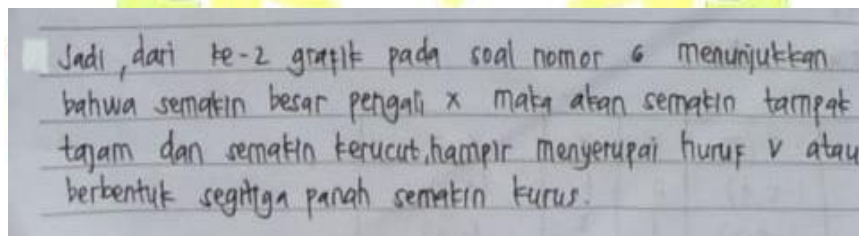 Jadi, dari ke-2 grafik pada soal nomor 6 menunjukkan
bahwa semakin besar pengali x maka akan semakin tampak
tajam dan semakin kerucut, hampir menyerupai huruf V atau
berbentuk segitiga panah semakin kurus.